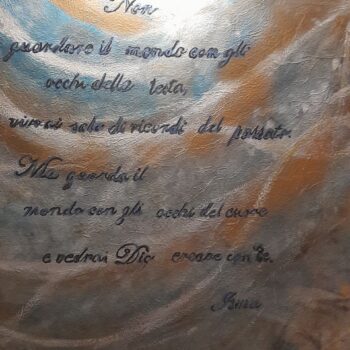 Non
guardare il mondo con gli
occhi della testa,
vivrai solo di ricordi del passato.
Ma guarda il
mondo con gli occhi del cuore
e vedrai Dio creare con te.